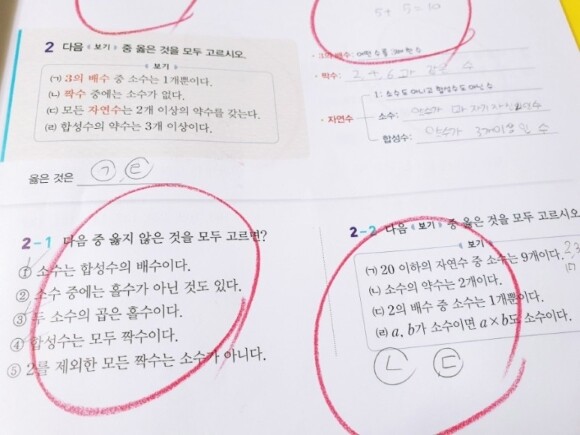 5 + 5 = 10
2 다음 《보기》 중 옳은 것을 모두 고르시오.
《보기》
(ㄱ) 3의 배수 중 소수는 1개뿐이다.
(ㄴ) 짝수 중에는 소수가 없다.
(ㄷ) 모든 자연수는 2개 이상의 약수를 갖는다.
(ㄹ) 합성수의 약수는 3개 이상이다.
옳은 것은 ㄱ, ㄹ
• 3의 배수:
• 짝수: 2, 4, 6 과 같은 수
• 자연수
1: 소수도 아니고 합성수도 아닌 수
소수: 약수가 1과 자기 자신인 수
합성수: 약수가 3개이상인 수
2-1 다음 중 옳지 않은 것을 모두 고르면?
① 소수는 합성수의 배수이다.
② 소수 중에는 홀수가 아닌 것도 있다.
③ 두 소수의 곱은 홀수이다.
④ 합성수는 모두 짝수이다.
⑤ 2를 제외한 모든 짝수는 소수가 아니다.
2-2 다음 《보기》 중 옳은 것을 모두 고르시오
《보기》
(ㄱ) 20 이하의 자연수 중 소수는 9개이다.
(ㄴ) 소수의 약수는 2개이다.
(ㄷ) 2의 배수 중 소수는 1개뿐이다.
(ㄹ) a, b가 소수이면 a×b도 소수이다.
ㄴ ㄷ